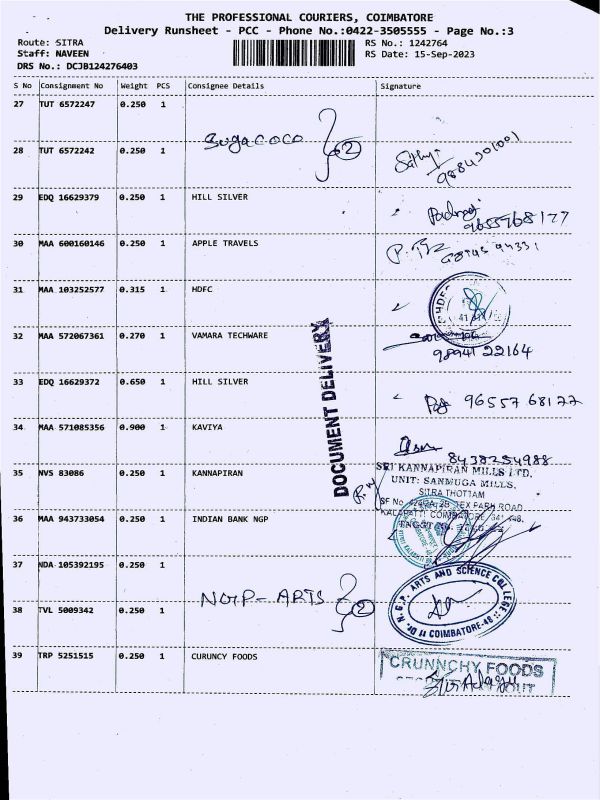 THE PROFESSIONAL COURIERS, COIMBATORE
Delivery Runsheet - PCC - Phone No.:0422-3505555 - Page No.:3
Route: SITRA
RS No.: 1242764
Staff: NAVEEN
RS Date: 15-Sep-2023
DRS No.: DCJB124276403
S No Consignment No Weight PCS Consignee Details Signature
27 TUT 6572247 0.250 1
Sugacoco 2
28 TUT 6572242 0.250 1
Sathy
9884201001
29 EDQ 16629379 0.250 1 HILL SILVER
9655768177
30 MAA 600160146 0.250 1 APPLE TRAVELS
31 MAA 103252577 0.315 1 HDFC
HDFC
32 MAA 572067361 0.270 1 VAMARA TECHWARE
98941 22164
DOCUMENT DELIVERY
33 EDQ 16629372 0.650 1 HILL SILVER
96557 68177
34 MAA 571085356 0.900 1 KAVIYA
8438254988
35 NVS 83086 0.250 1 KANNAPIRAN
SRI KANNAPIRAN MILLS LTD.
UNIT: SANMUGA MILLS,
SITRA THOTTAM
36 MAA 943733054 0.250 1 INDIAN BANK NGP
37 NDA 105392195 0.250 1
NGP-ARTS 2
38 TVL 5009342 0.250 1
Dr. N. G. P. ARTS AND SCIENCE COLLEGE
COIMBATORE-48
39 TRP 5251515 0.250 1 CURUNCY FOODS
CRUNNCHY FOODS